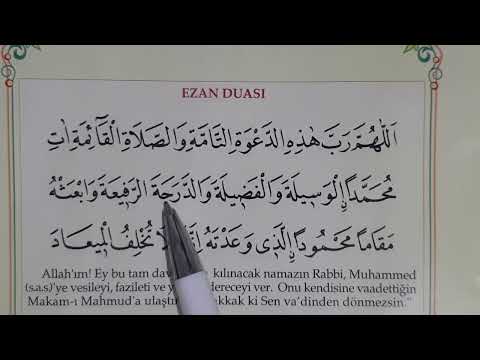 EZAN DUASI
اَللّٰهُمَّ رَبَّ هٰذِهِ الدَّعْوَةِ التَّامَّةِ وَالصَّلَاةِ الْقَٓائِمَةِ اٰتِ
مُحَمَّدًاۨ الْوَسٖيلَةَ وَالْفَضٖيلَةَ وَالدَّرَجَةَ الرَّفٖيعَةَ وَابْعَثْهُ
مَقَامًا مَحْمُودًاۨ الَّذٖى وَعَدْتَهُ تُخْلِفُ الْمٖيعَادَ
Allah'ım! Ey bu tam kılınacak namazın Rabbi, Muhammed
(s.a.s)'ye vesileyi, fazileti ve dereceyi ver. Onu kendisine vaadettiğin
Makam-ı Mahmud'a ki Sen va'dinden dönmezsin."